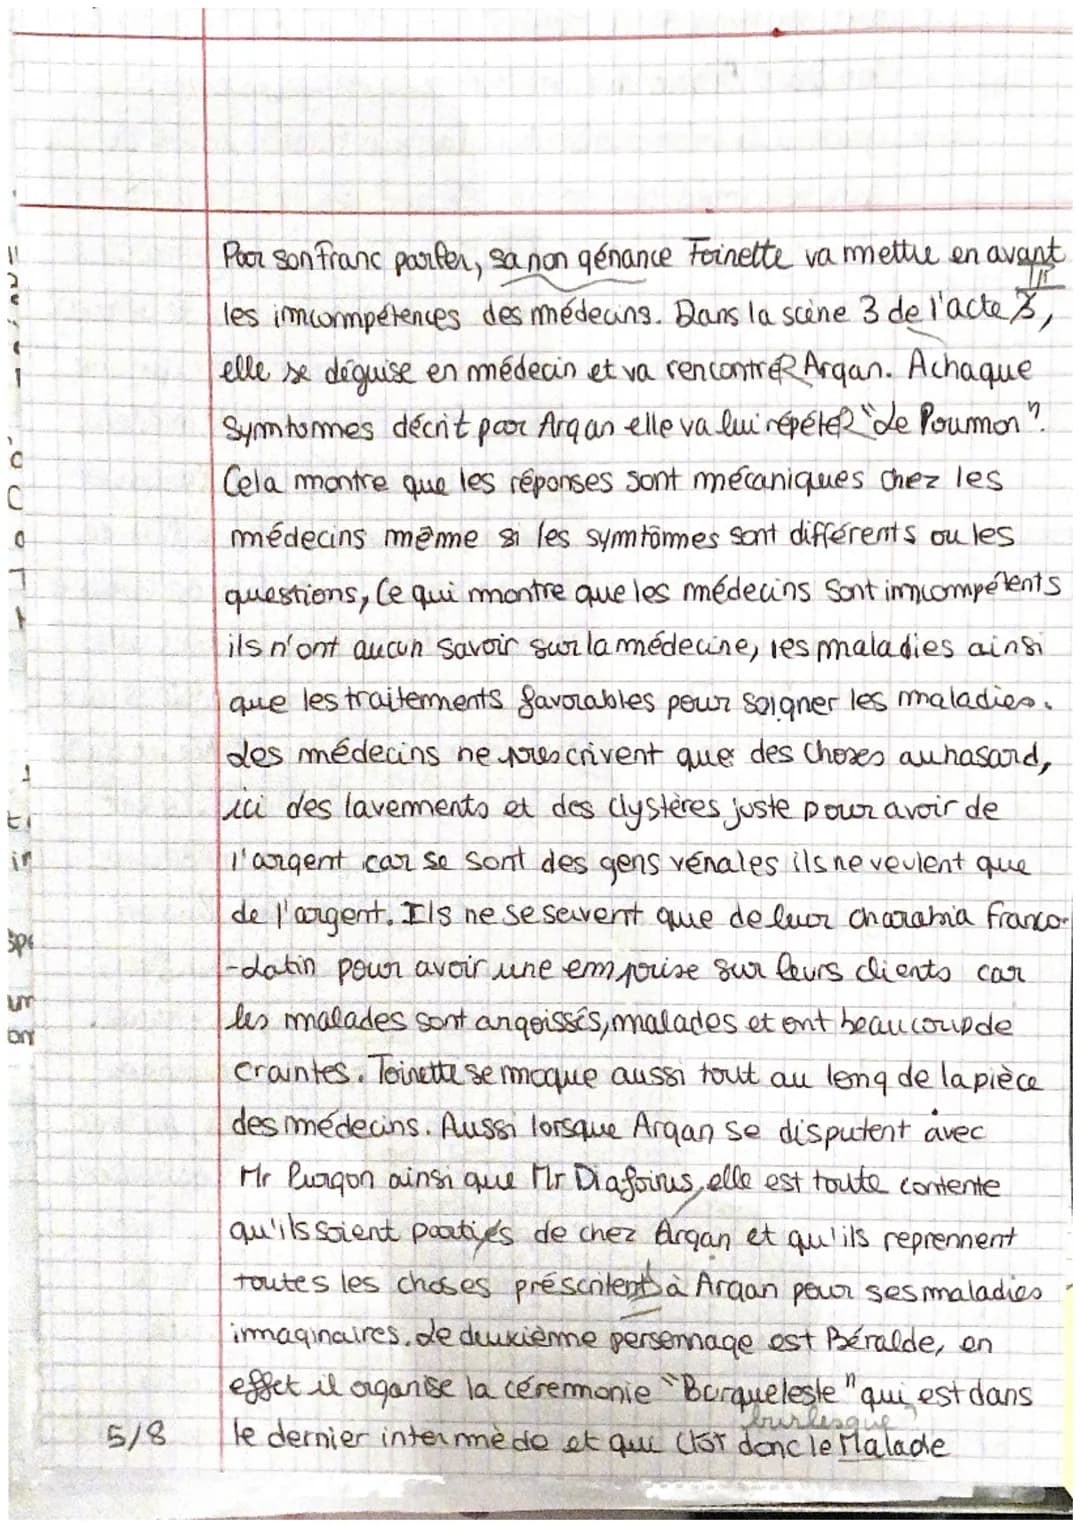 Par son franc parler, sa non gênance Toinette va mettre en avant
les imcormpétences des médecins. Dans la scène 3 de l'acte III,
elle se déguise en médecin et va rencontrer Argan. A chaque
Symtommes décrit par Argan elle va lui répéter "Le Poumon".
Cela montre que les réponses sont mécaniques chez les
médecins même si les symtômmes sont différents ou les
questions, Ce qui montre que les médecins sont imcompétents
ils n'ont aucun savoir sur la médecine, les maladies ainsi
que les traitements favorables pour soigner les maladies.
Les médecins ne prescrivent que des choses au hasard,
ici des lavements et des clystères juste pour avoir de
l'argent car se sont des gens vénales ils ne veulent que
de l'argent. Ils ne se servent que de leur charabia franco-
-Latin pour avoir une emprise sur leurs clients car
les malades sont angoissés, malades et ont beaucoup de
craintes. Toinette se moque aussi tout au long de la pièce
des médecins. Aussi lorsque Argan se disputent avec
Mr Purgon ainsi que Mr Diafoirus, elle est toute contente
qu'ils soient partiés de chez Argan et qu'ils reprennent
toutes les choses préscritent à Argan pour ses maladies
immaginaires. Le deuxième personnage est Béralde, en
effet il organise la céremonie "Burqueleste" qui est dans
burlesque
5/8 le dernier intermède et qui clôt donc le Malade